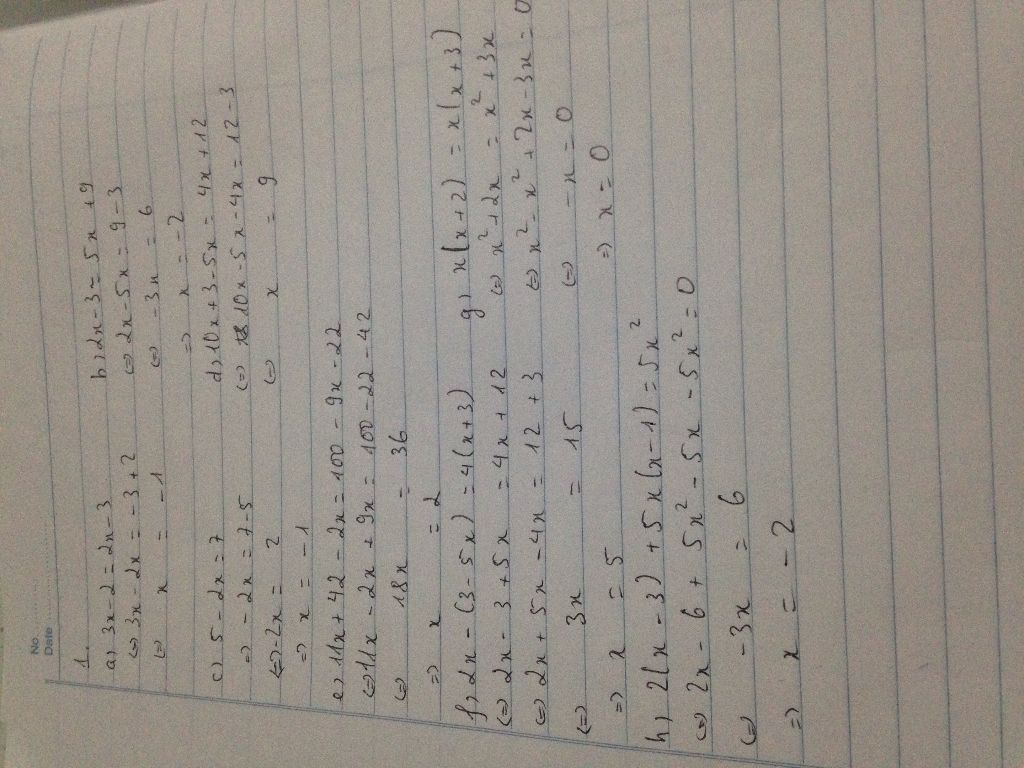 No
Date
1.
a) 3x - 2 = 2x - 3
⇔ 3x - 2x = -3 + 2
⇔ x = -1
b) 2x - 3 = 5x + 9
⇔ 2x - 5x = 9 - 3
⇔ -3x = 6
⇒ x = -2
c) 5 - 2x = 7
⇒ -2x = 7 - 5
⇔ -2x = 2
⇒ x = -1
d) 10x + 3 - 5x = 4x + 12
⇔ 10x - 5x - 4x = 12 - 3
⇔ x = 9
e) 11x + 42 - 2x = 100 - 9x - 22
⇔ 11x - 2x + 9x = 100 - 22 - 42
⇔ 18x = 36
⇒ x = 2
f) 2x - (3 - 5x) = 4(x + 3)
⇔ 2x - 3 + 5x = 4x + 12
⇔ 2x + 5x - 4x = 12 + 3
⇔ 3x = 15
⇒ x = 5
g) x(x + 2) = x(x + 3)
⇔ x² + 2x = x² + 3x
⇔ x² - x² + 2x - 3x = 0
⇔ -x = 0
⇒ x = 0
h) 2(x - 3) + 5x(x - 1) = 5x²
⇔ 2x - 6 + 5x² - 5x - 5x² = 0
⇔ -3x = 6
⇒ x = -2